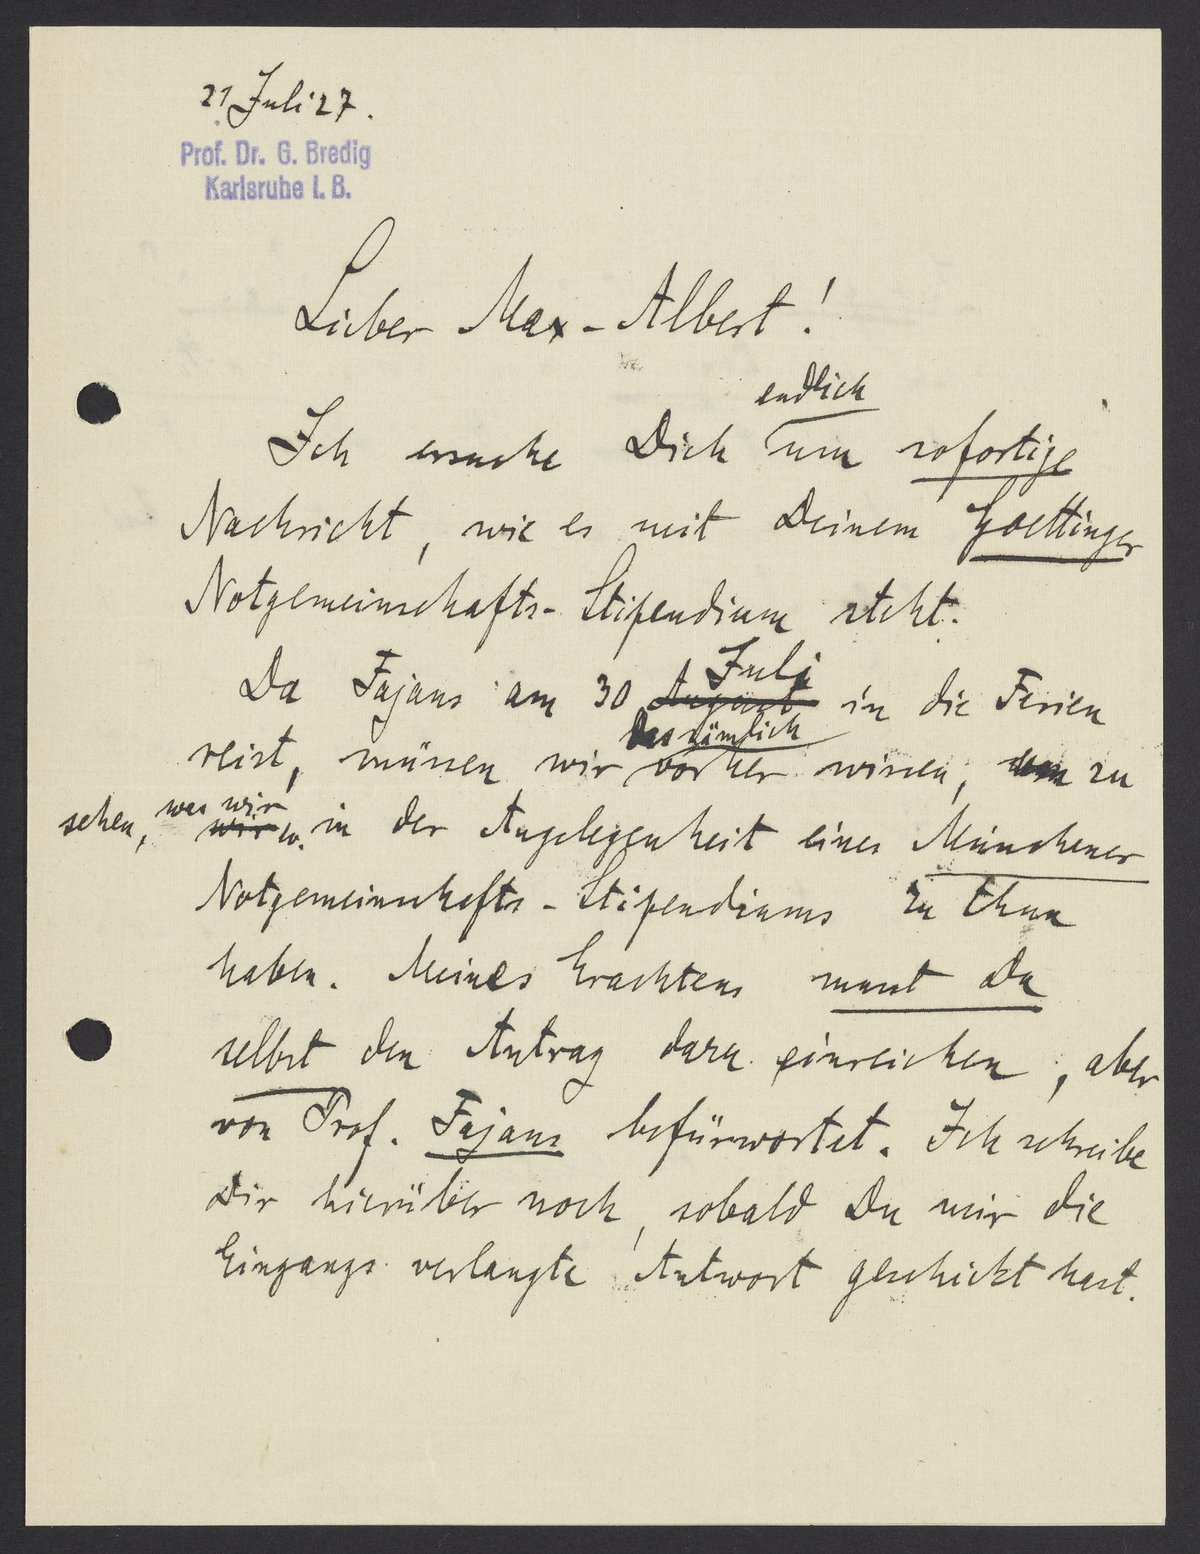 21 Juli 27.
Prof. Dr. G. Bredig
Karlsruhe i. B.
Lieber Max-Albert!
endlich
Ich ersuche Dich um sofortige
Nachricht, wie es mit Deinem Goettinger
Notgemeinschafts-Stipendium steht.
Juli
Da Fajans am 30 August in die Ferien
das nämlich
reist, müssen wir vorher wissen, um zu
sehen, was wir
wir w. in der Angelegenheit eines Münchener
Notgemeinschafts-Stipendiums zu thun
haben. Meines Erachtens musst Du
selbst den Antrag dazu einreichen, aber
von Prof. Fajans befürwortet. Ich schreibe
Dir hierüber noch, sobald Du mir die
Eingangs verlangte Antwort geschickt hast.